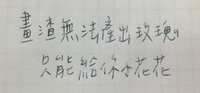 畫渣無法產出玫瑰
只能給你小花花